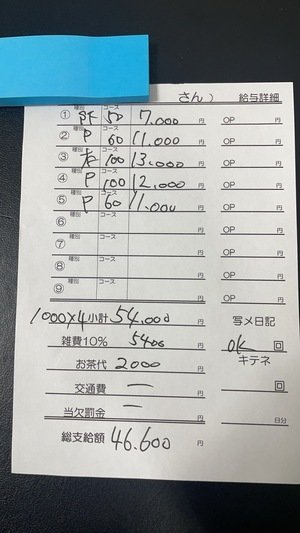 さん） 給与詳細
① 種別 コース 50 7.000 円 OP 円
② 種別 P コース 60 11.000 円 OP 円
③ 種別 本 コース 100 13.000 円 OP 円
④ 種別 P コース 100 12.000 円 OP 円
⑤ 種別 P コース 60 11.000 円 OP 円
⑥ 種別 コース 円 OP 円
⑦ 種別 コース 円 OP 円
⑧ 種別 コース 円 OP 円
⑨ 種別 コース 円 OP 円
1000×4 小計 54.000 円 写メ日記
雑費10% 5400 円 OK 回
お茶代 2000 円 キテネ
交通費 ー 円 回
当欠罰金 ー 円 日分
総支給額 46.600 円